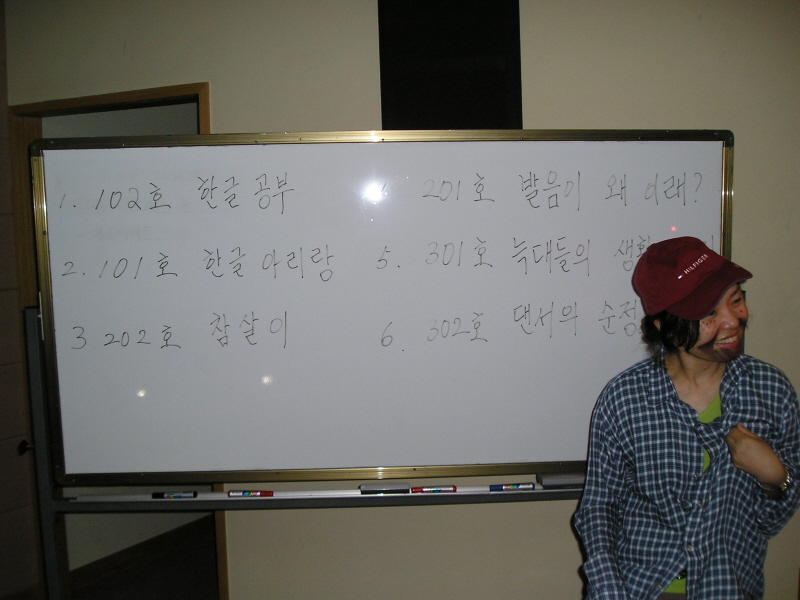 1. 102호 한글 공부
2. 101호 한글 아리랑
3 202호 참살이
201호 발음이 왜 이래?
5. 301호 늑대들의
6. 302호 댄서의 순정
HILFIGER